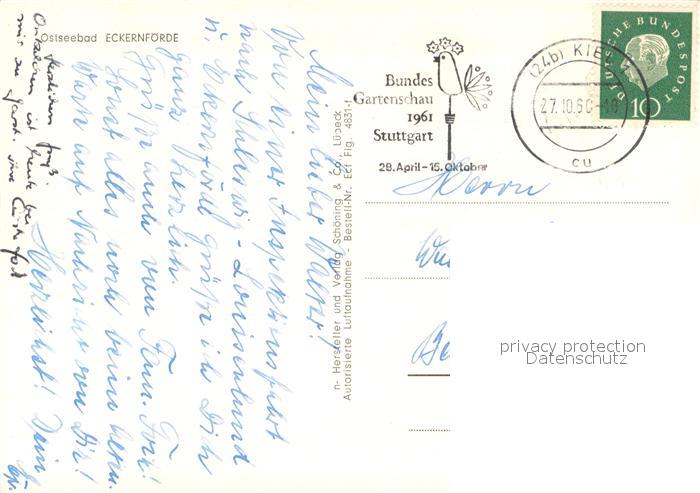 Ostseebad ECKERNFÖRDE
Mein lieber Walter!
Von einer Inspektionsfahrt
nach Schleswig - Louisenlund
u. Eckernförde grüße ich Dich
ganz herzlich.
Grüße auch von Fam.
Sonst alles noch beim alten.
Warte auf Nachricht von Dir!
Herzlichst! Dein
ist heute bei
mir zu Gast.
n- Hersteller und Verlag Schöning & Co., Lübeck
Autorisierte Luftaufnahme Bestell-Nr. Ecf Flg. 4831-f
Bundes
Gartenschau
1961
Stuttgart
28. April - 15. Oktober
(24b) KIEL
27.10.60-18
cu
DEUTSCHE BUNDESPOST
10
Herrn
privacy protection
Datenschutz